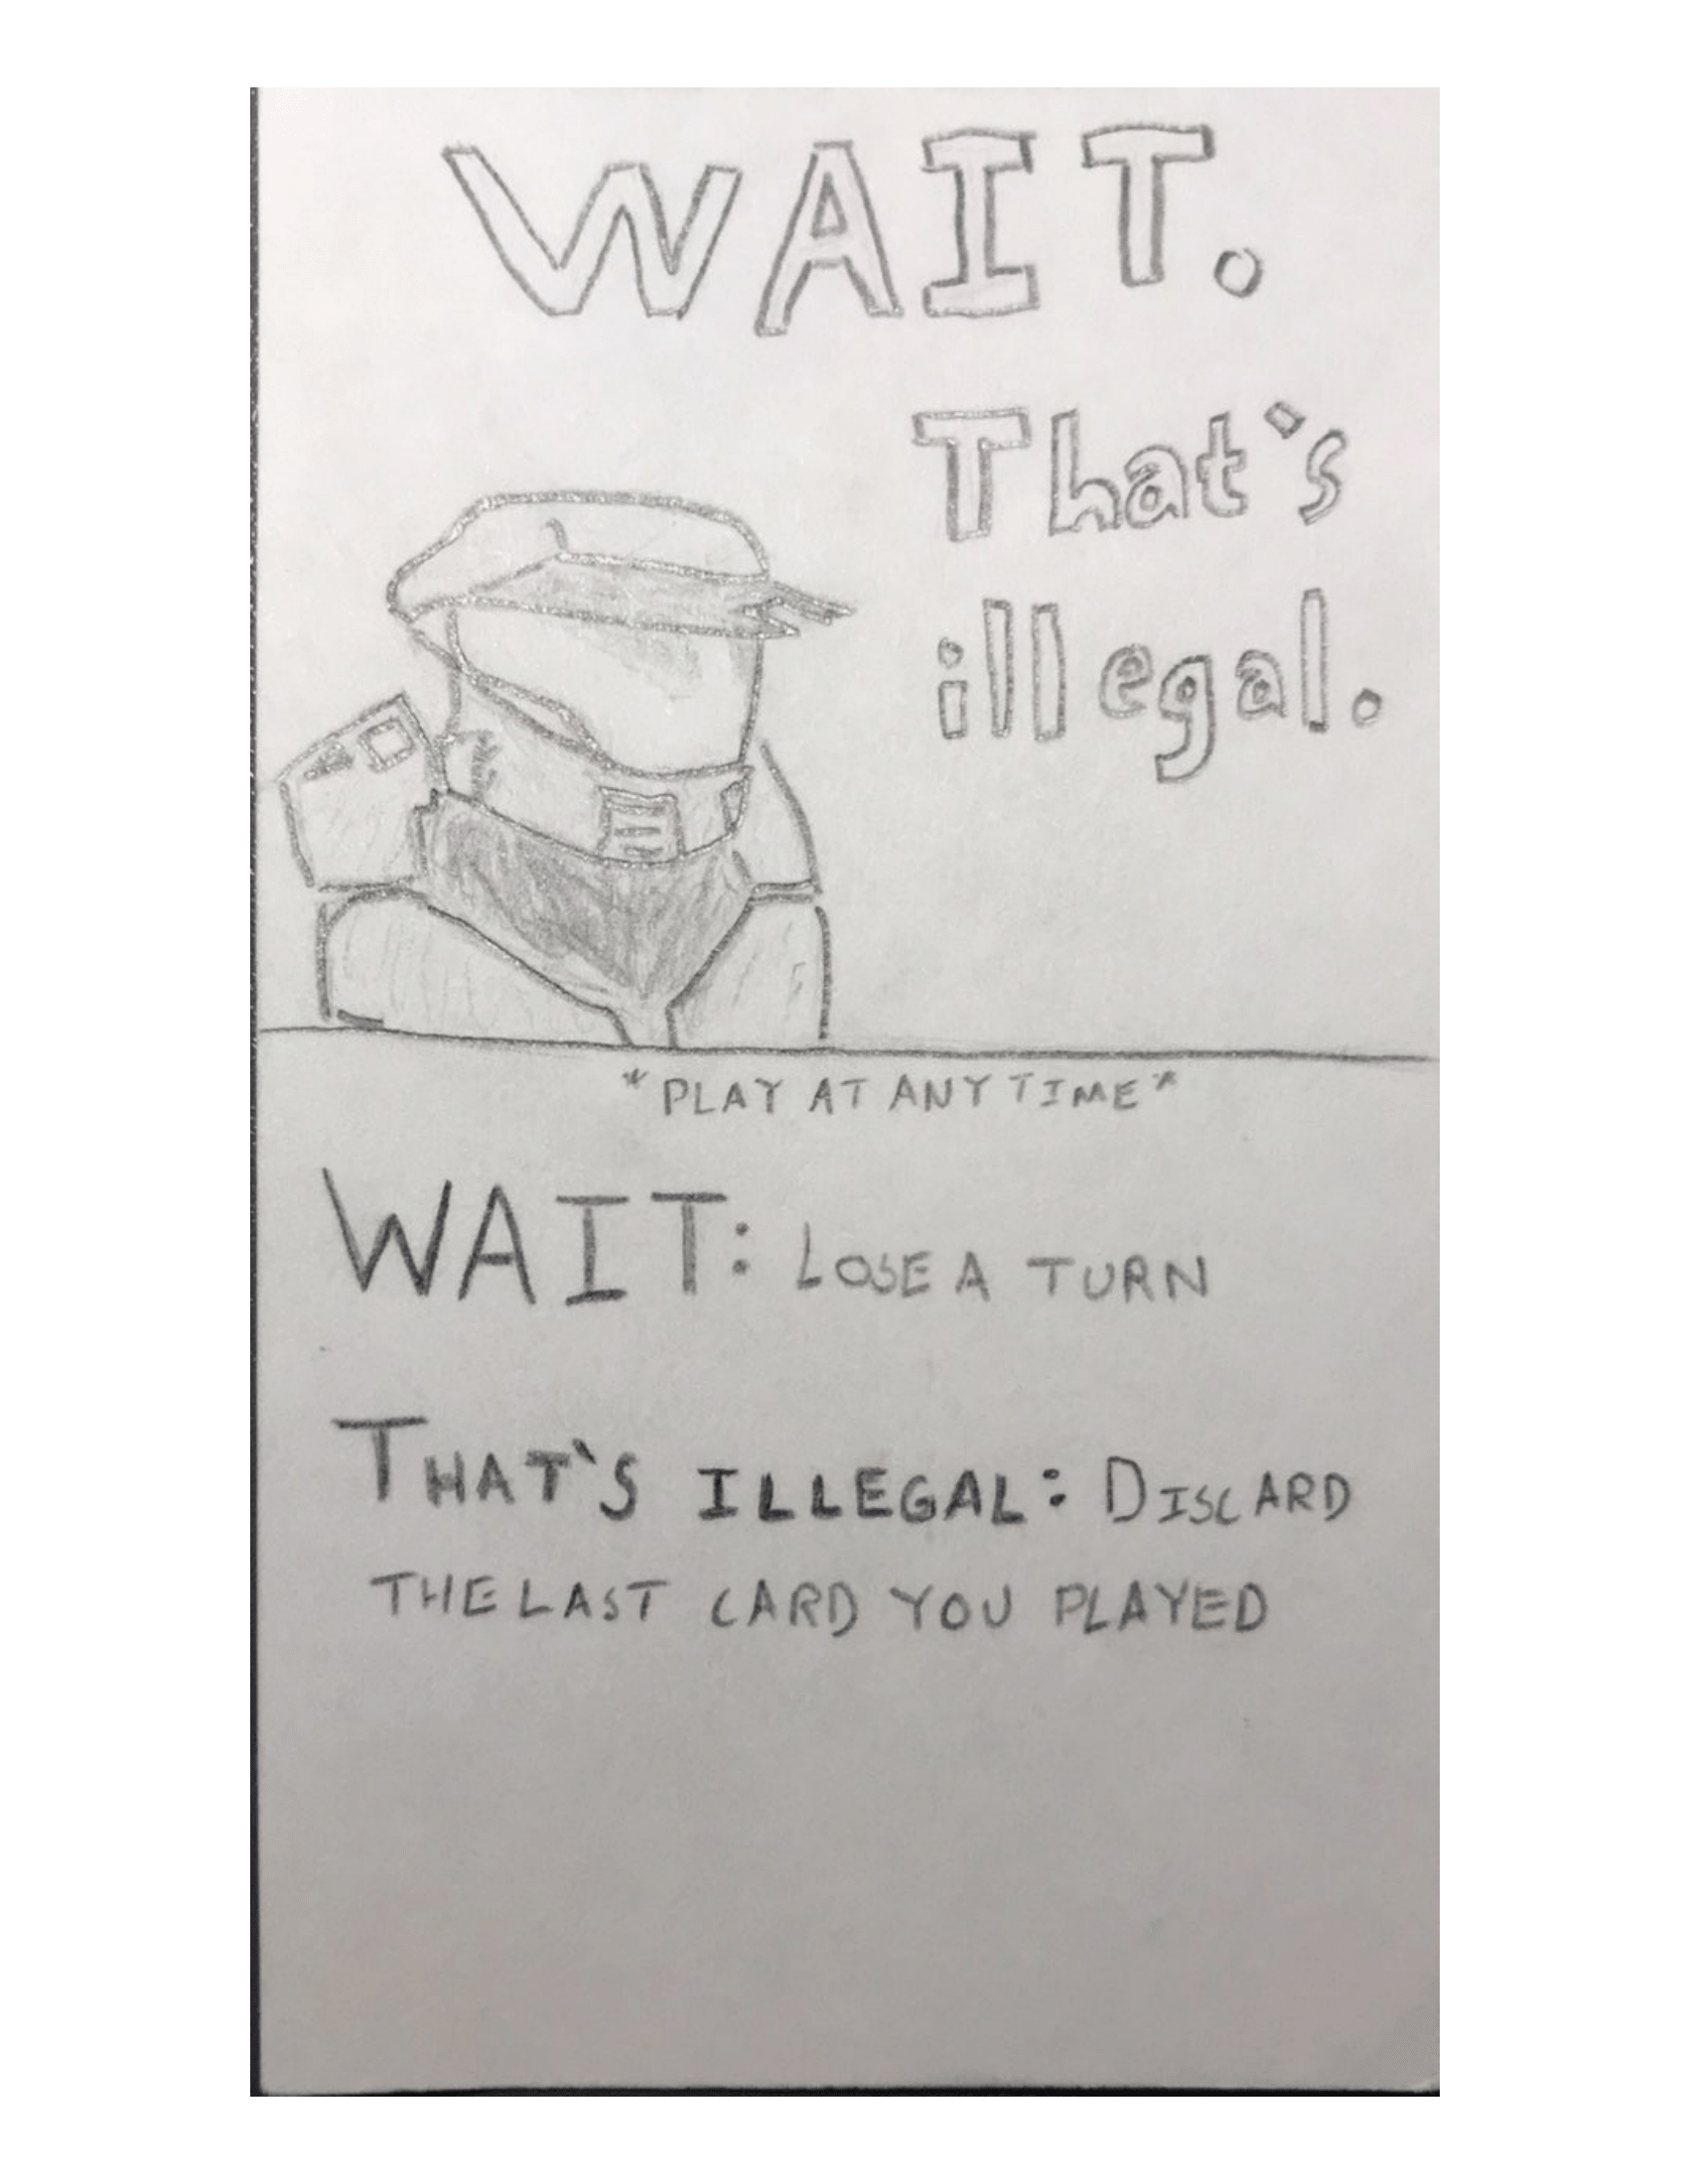 WAIT.
That's
illegal.
*PLAY AT ANY TIME*
WAIT: LOSE A TURN
THAT'S ILLEGAL: DISCARD
THE LAST CARD YOU PLAYED